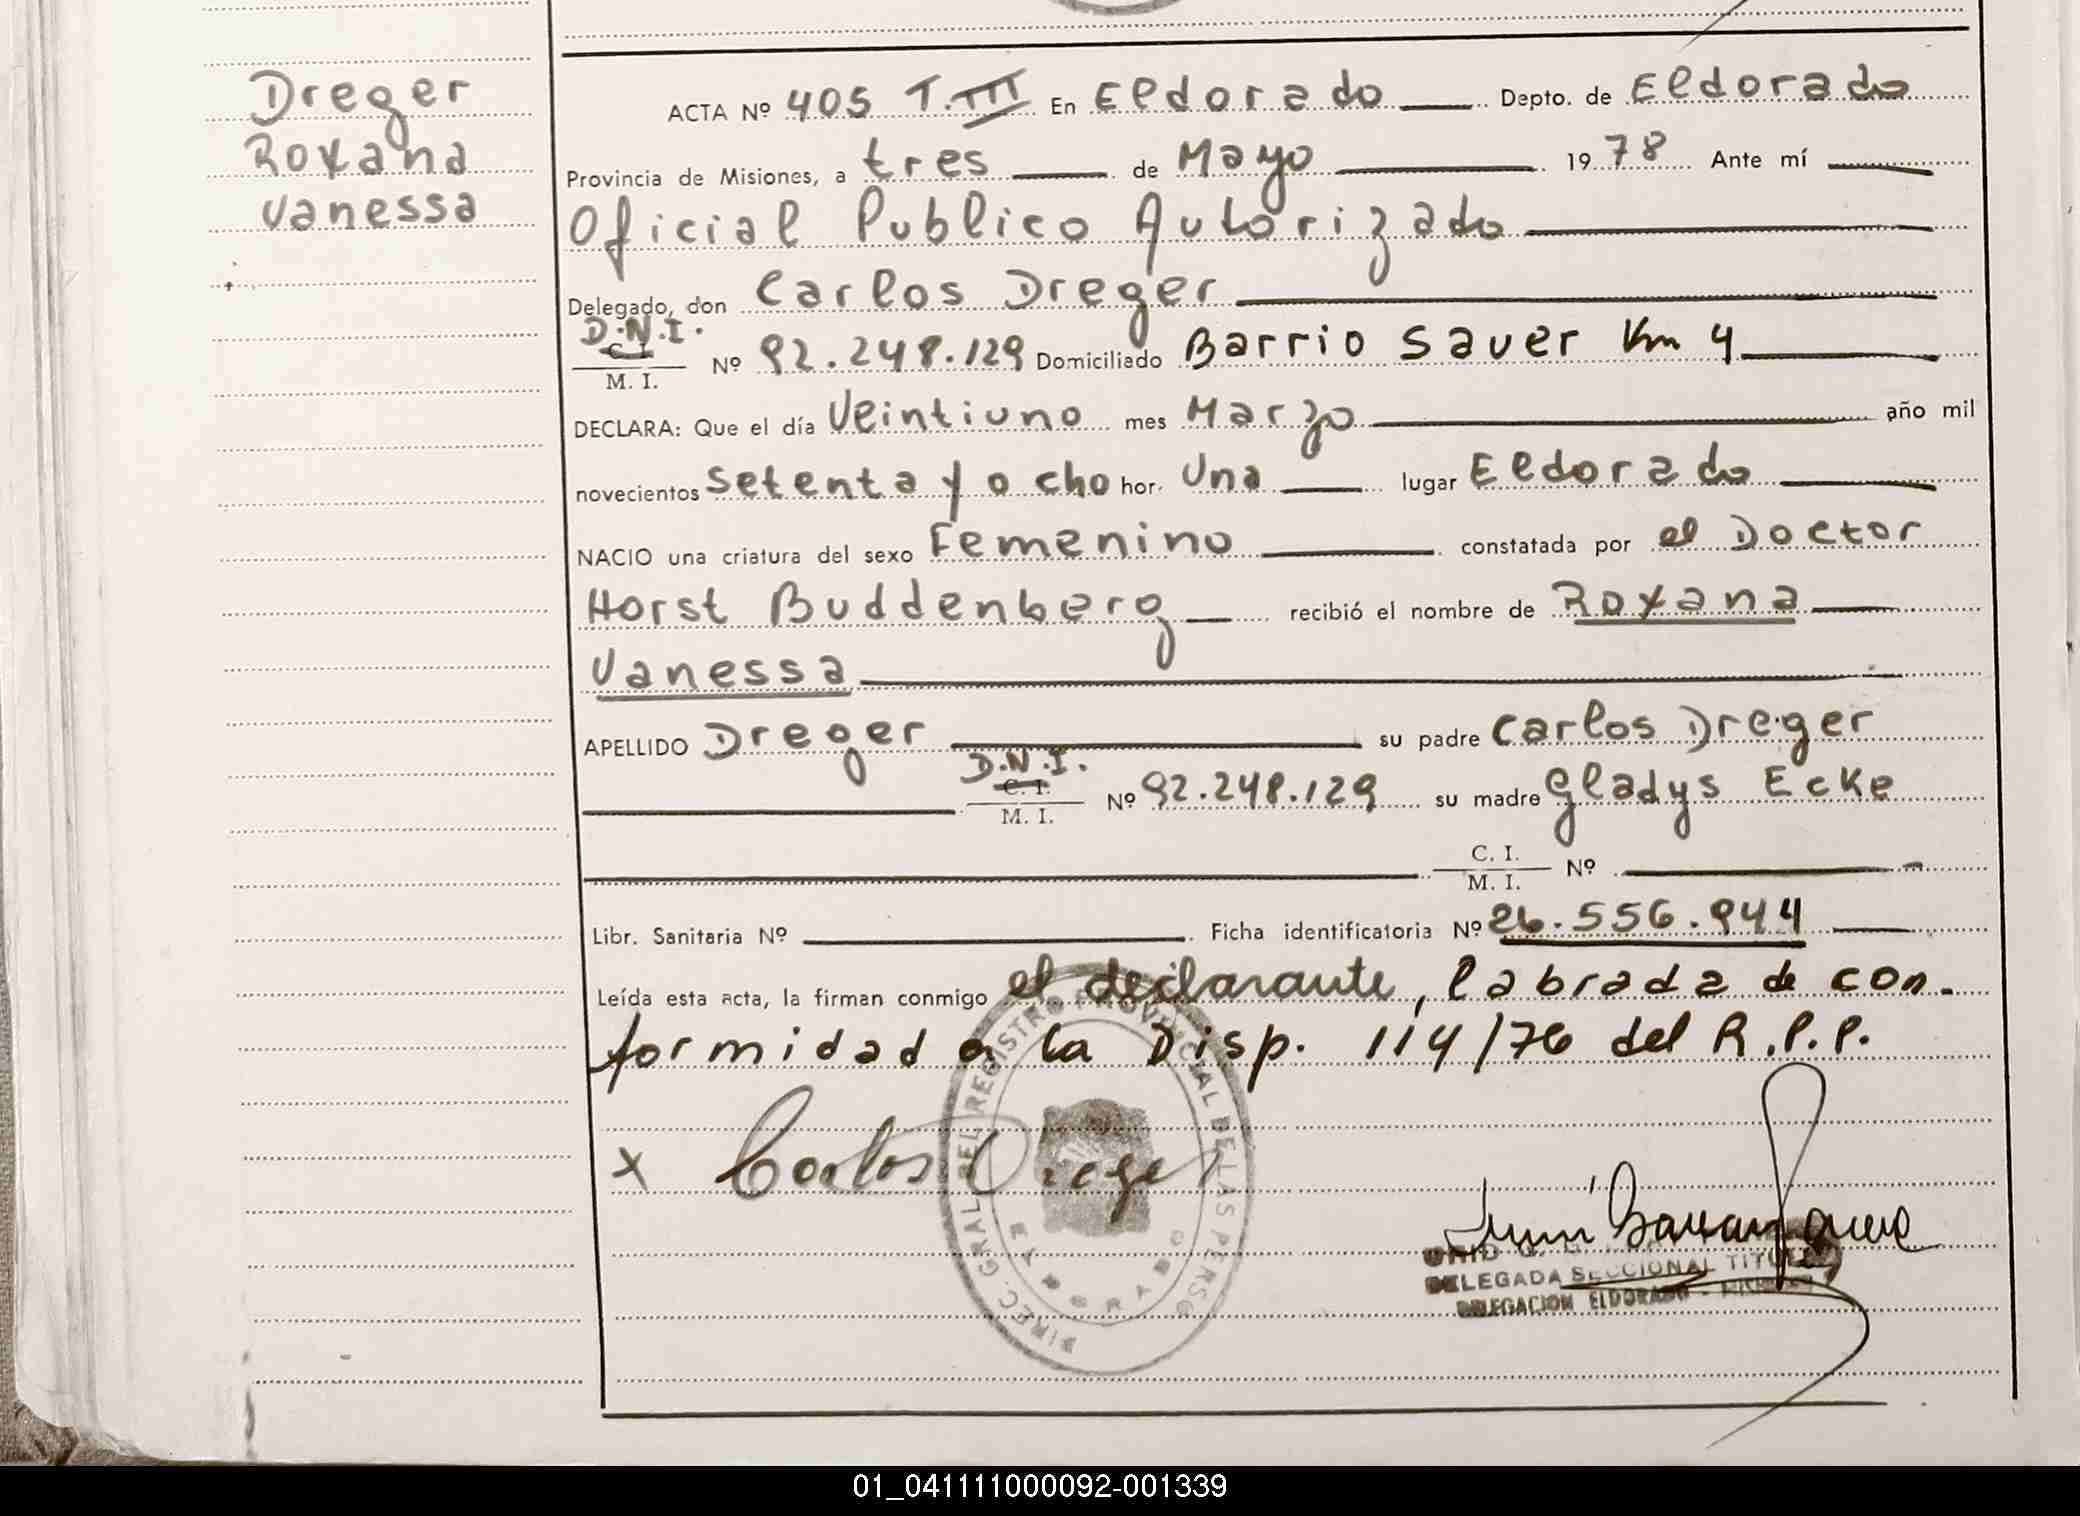 Dreger
Roxana
Vanessa
ACTA Nº 405 T.III En Eldorado Depto. de Eldorado
Provincia de Misiones, a tres de Mayo 1978 Ante mí
Oficial Publico Autorizado
Delegado, don Carlos Dreger
D.N.I.
C. I.
M. I. Nº 92.248.129 Domiciliado Barrio Sauer Km 4
DECLARA: Que el día Veintiuno mes Marzo año mil
novecientos setenta y ocho hor. Una lugar Eldorado
NACIO una criatura del sexo Femenino constatada por el Doctor
Horst Buddenberg recibió el nombre de Roxana
Vanessa
APELLIDO Dreger su padre Carlos Dreger
D.N.I.
C. I.
M. I. Nº 92.248.129 su madre Gladys Ecke
C. I.
M. I. Nº
Libr. Sanitaria Nº Ficha identificatoria Nº 26.556.944
Leída esta acta, la firman conmigo el declarante, labrada de con-
formidad a la Disp. 114/76 del R.P.P.
x Carlos Dreger
DIREC. GRAL. DEL REGISTRO PROVINCIAL DE LAS PERSO
ELDORADO
DELEGADA SECCIONAL TITULAR
DELEGACION ELDORADO - MISIONES
01_041111000092-001339